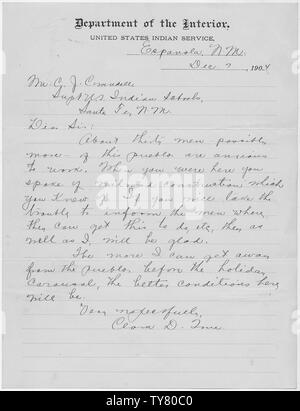 Department of the Interior,
UNITED STATES INDIAN SERVICE,
Espanola, N.M.,
Dec 7, 1904
Mr. C. J. Crandall
Supt U.S. Indian Schools,
Santa Fe, N.M.
Dear Sir:
About thirty men possibly
more - of this pueblo are anxious
to work. When you were here you
spoke of railroad construction which
you knew of. If you will take the
trouble to inform the men where
they can get this to do, etc, they as
well as I, will be glad.
The more I can get away
from the Pueblo before the holiday
Carousal, the better conditions here
will be.
Very respectfully,
Clara D. True
alamy
Image ID: TY80C0
www.alamy.com